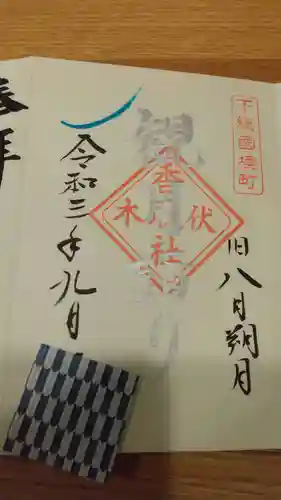 下総國境町
旧八月朔月
香取社
伏木
令和三年九月
奉拝